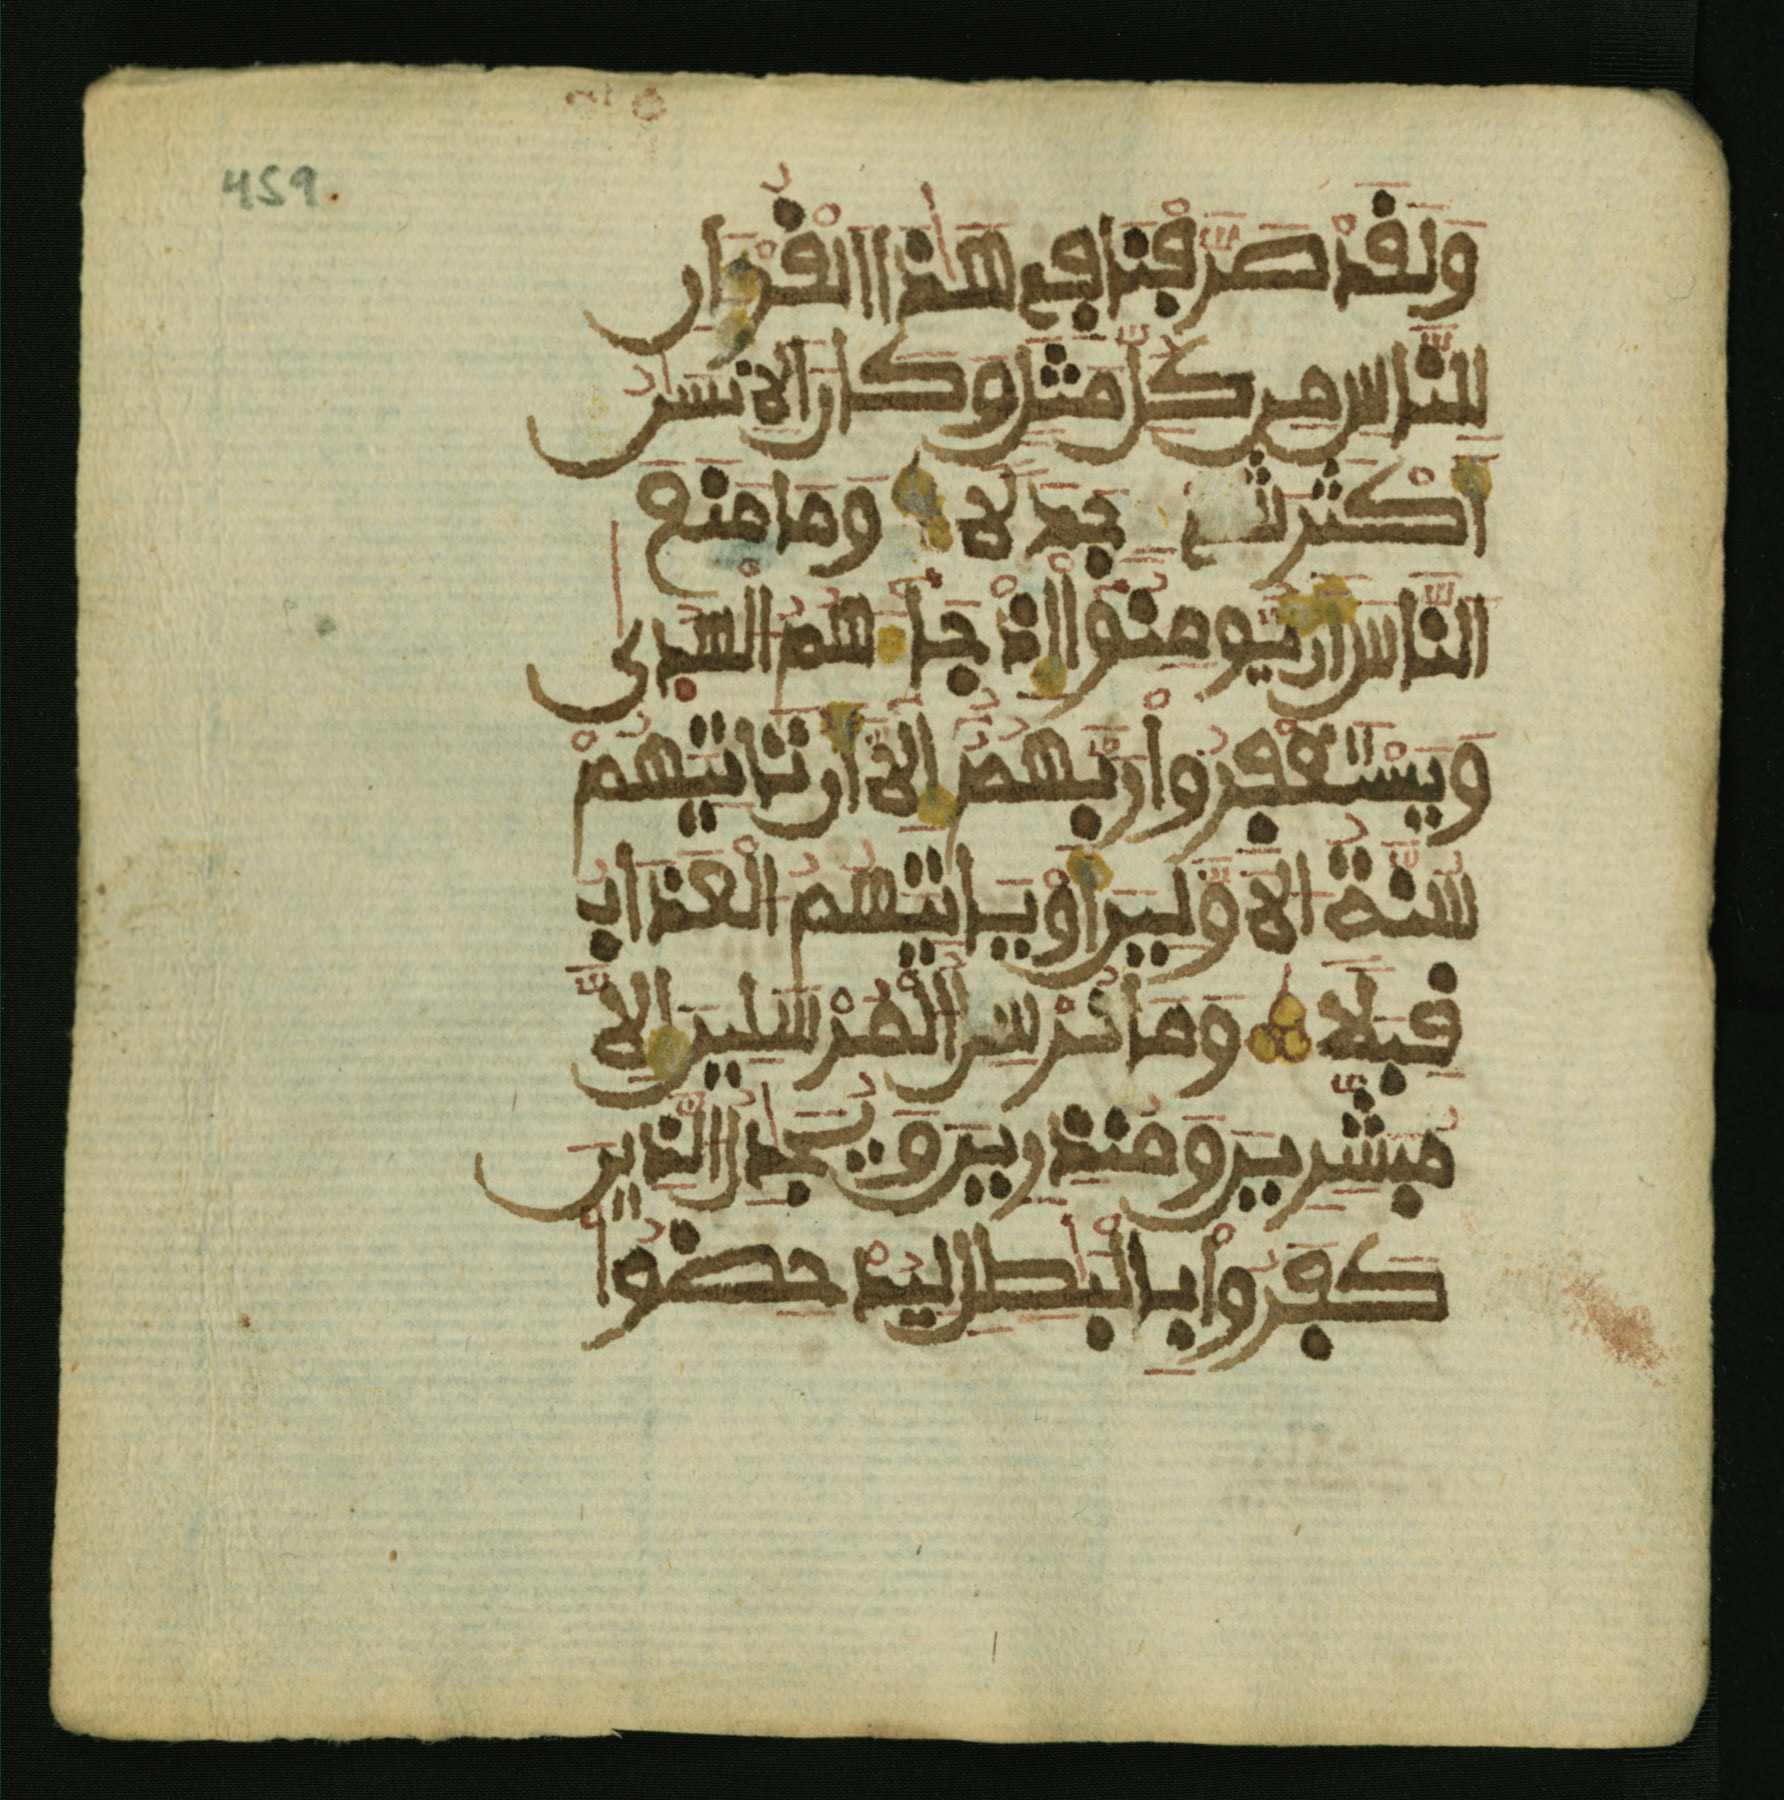 459
ولقد صرفنا في هذا القران
للناس من كل مثل وكان الانسن
اكثر شي جدلا وما منع
الناس ان يومنوا اذ جاهم الهدى
ويستغفروا ربهم الا ان تاتيهم
سنة الاولين او ياتيهم العذاب
قبلا وما نرسل المرسلين الا
مبشرين ومنذرين ويجدل الذين
كفروا بالبطل ليدحضوا